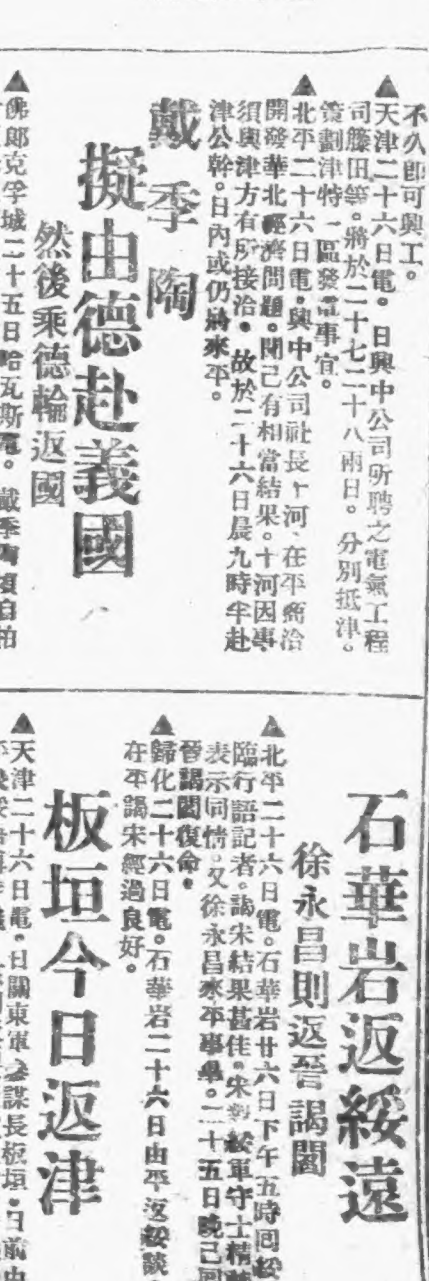 不久卽可興工。
▲天津二十六日電。日興中公司所聘之電氣工程
司籐田等。將於二十七二十八兩日。分別抵津。
籌劃津特一區發電事宜。
▲北平二十六日電。興中公司社長十河、在平商洽
開發華北經濟問題。聞已有相當結果。十河因事
須與津方有所接洽。故於二十六日晨九時半赴
津公幹。日內或仍將來平。
戴季陶
擬由德赴義國
然後乘德輪返國
▲佛郎克孚城二十五日哈瓦斯電。戴季陶頃自柏
石華岩返綏遠
徐永昌則返晉謁閻
▲北平二十六日電。石華岩廿六日下午五時囘綏
臨行語記者。謁宋結果甚佳。宋對綏軍守土精
表示同情。又徐永昌來平事畢。二十五日晚已
晉謁閻復命。
▲歸化二十六日電。石華岩二十六日由平返綏談
在平謁宋經過良好。
板垣今日返津
▲天津二十六日電。日關東軍參謀長板垣。日前由